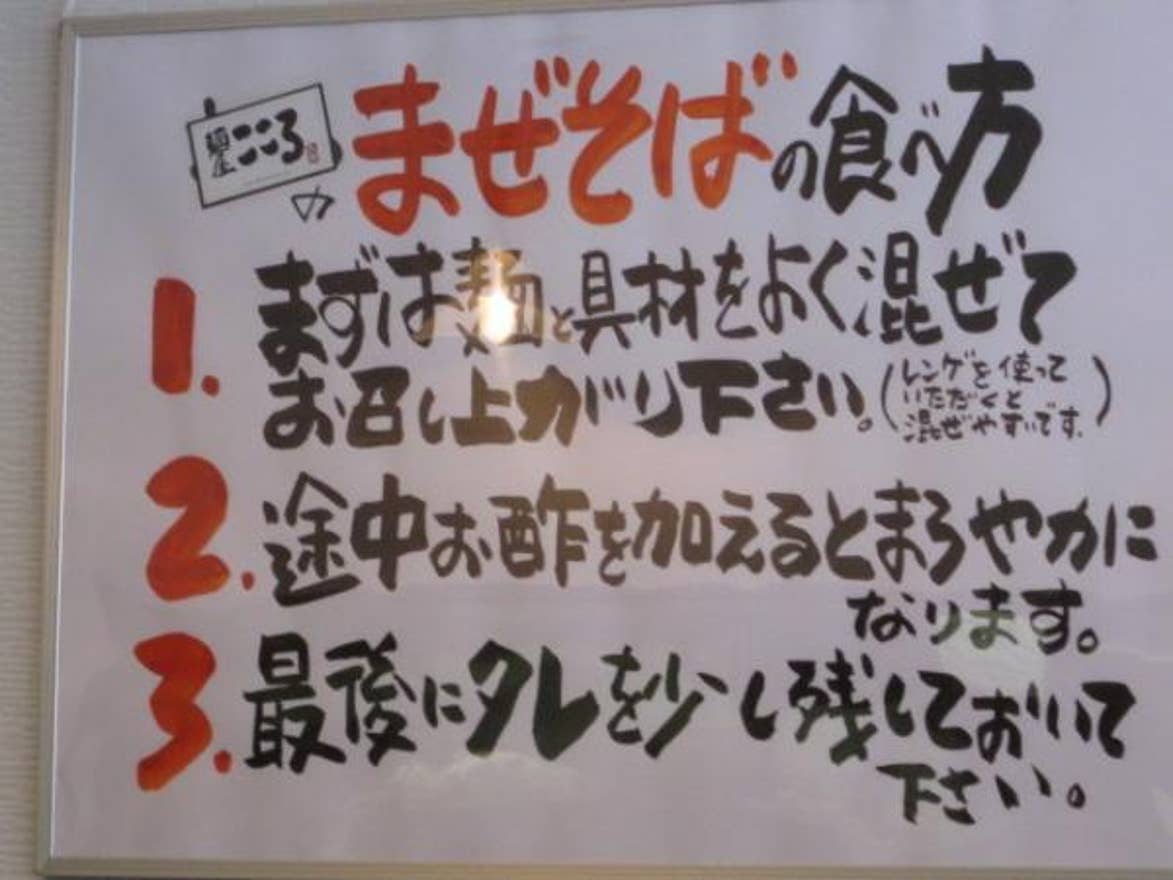 麺屋こころ
のまぜそばの食べ方
1. まずは麺と具材をよく混ぜて
お召し上がり下さい。
(レンゲを使って
いただくと
混ぜやすいです。)
2. 途中お酢を加えるとまろやかに
なります。
3. 最後にタレを少し残しておいて
下さい。